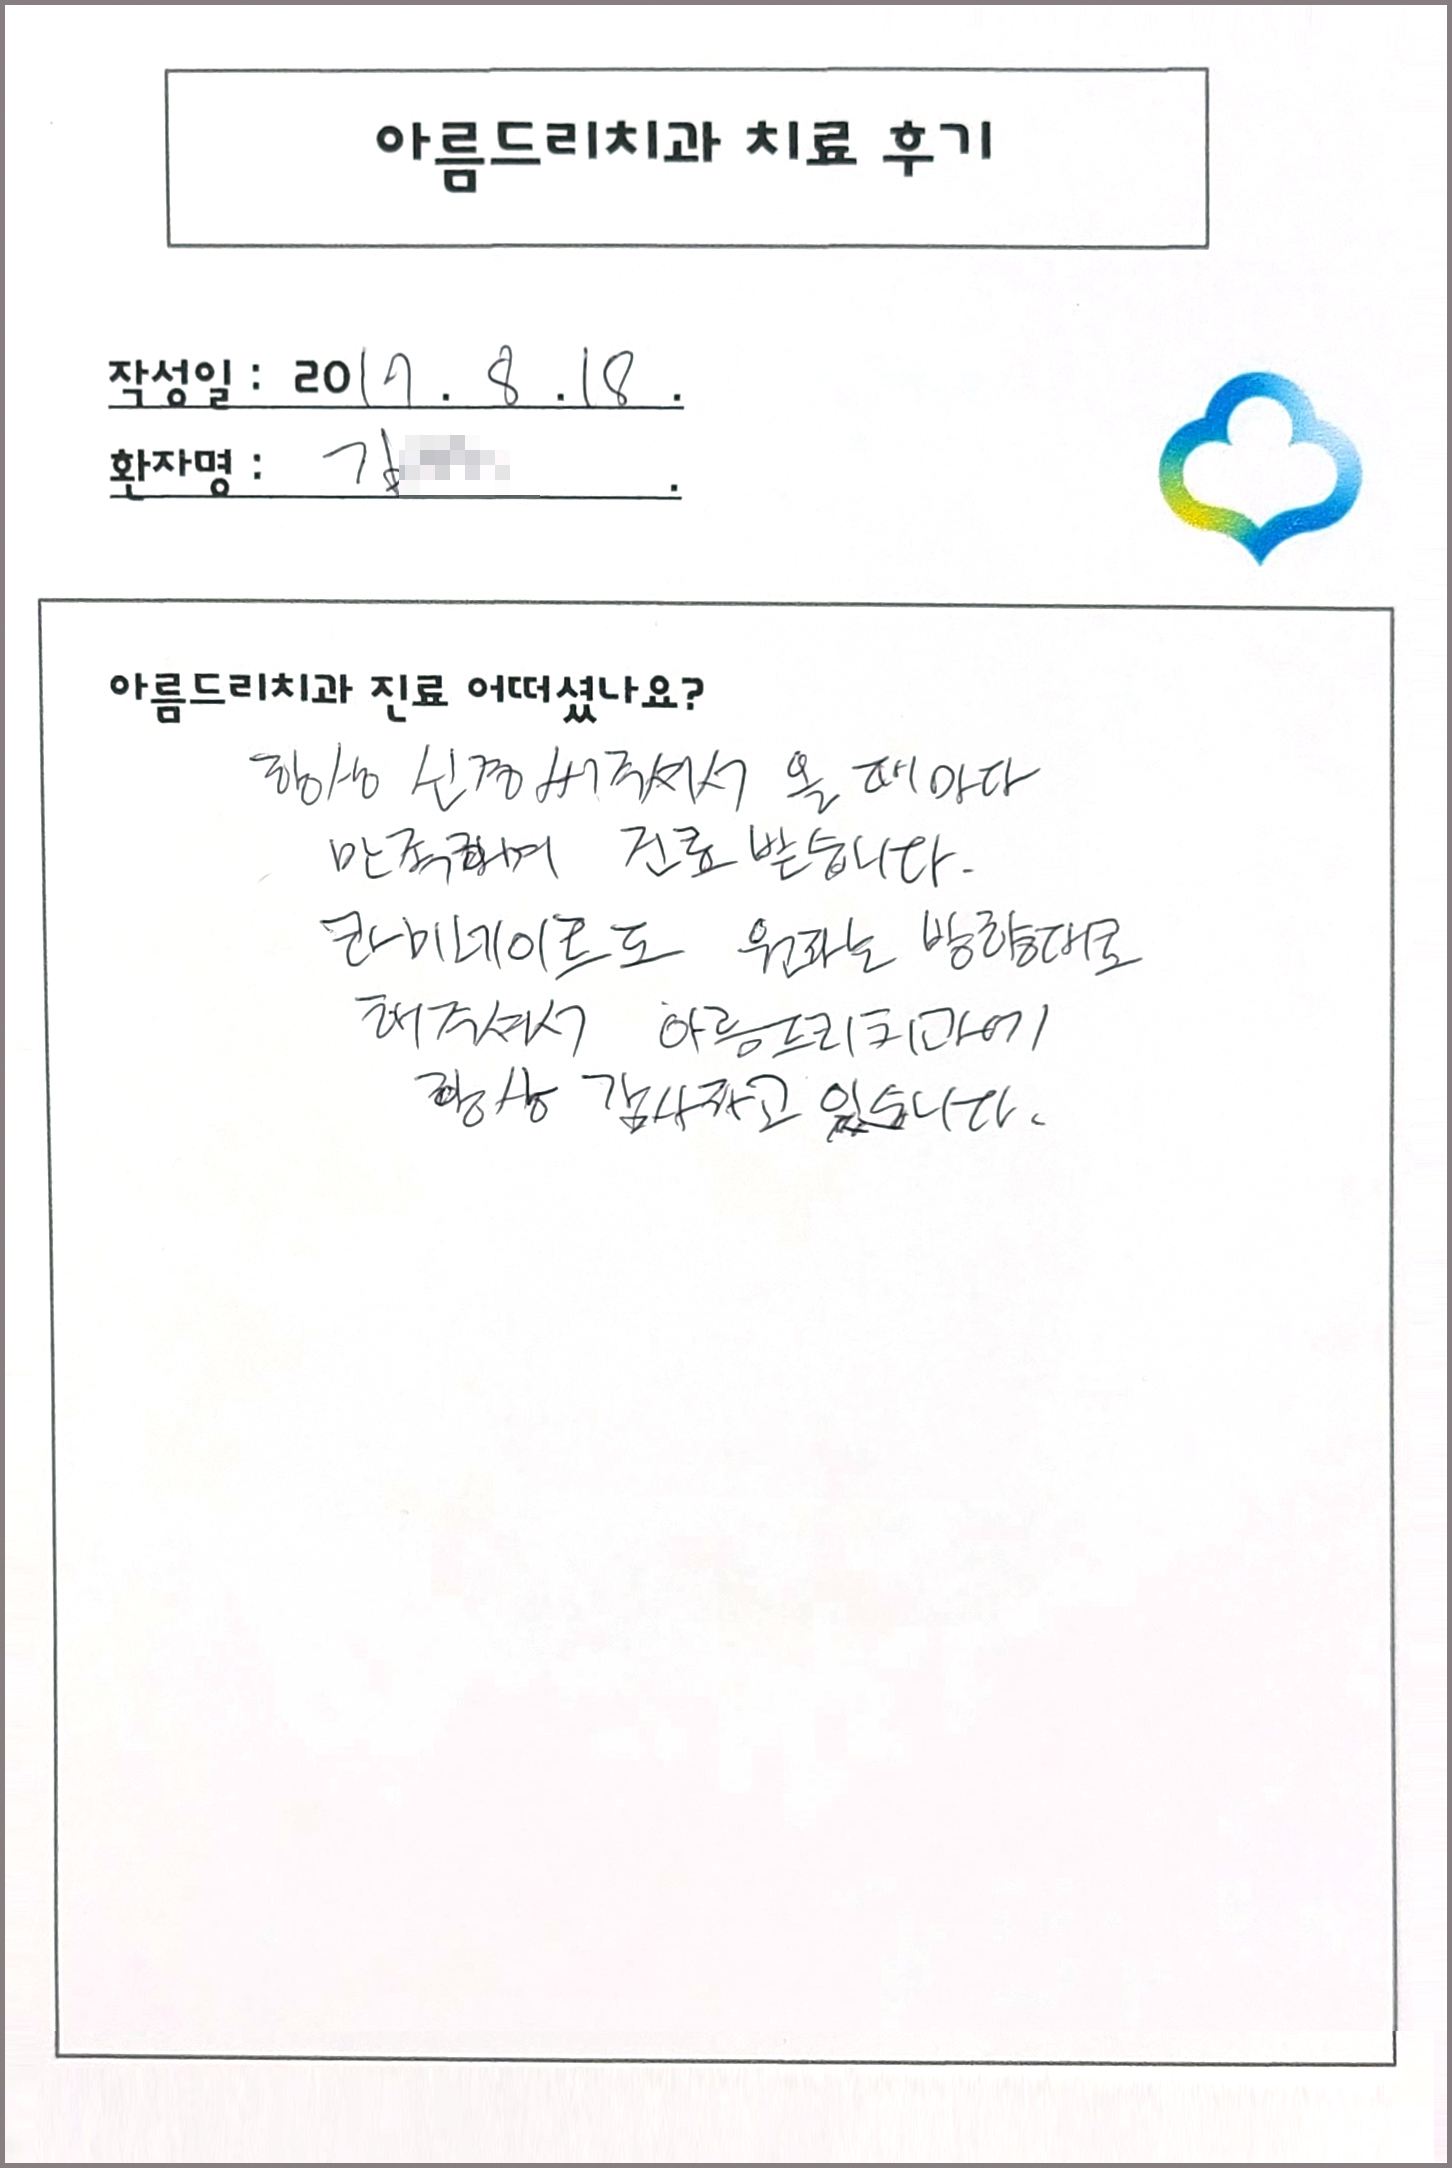 아름드리치과 치료 후기
작성일 : 2017. 8. 18.
환자명 : 김 .
아름드리치과 진료 어떠셨나요?
항상 신경써주셔서 올 때마다
만족하며 진료받습니다.
라미네이트도 원하는 방향대로
해주셔서 아름드리치과에
항상 감사하고 있습니다.